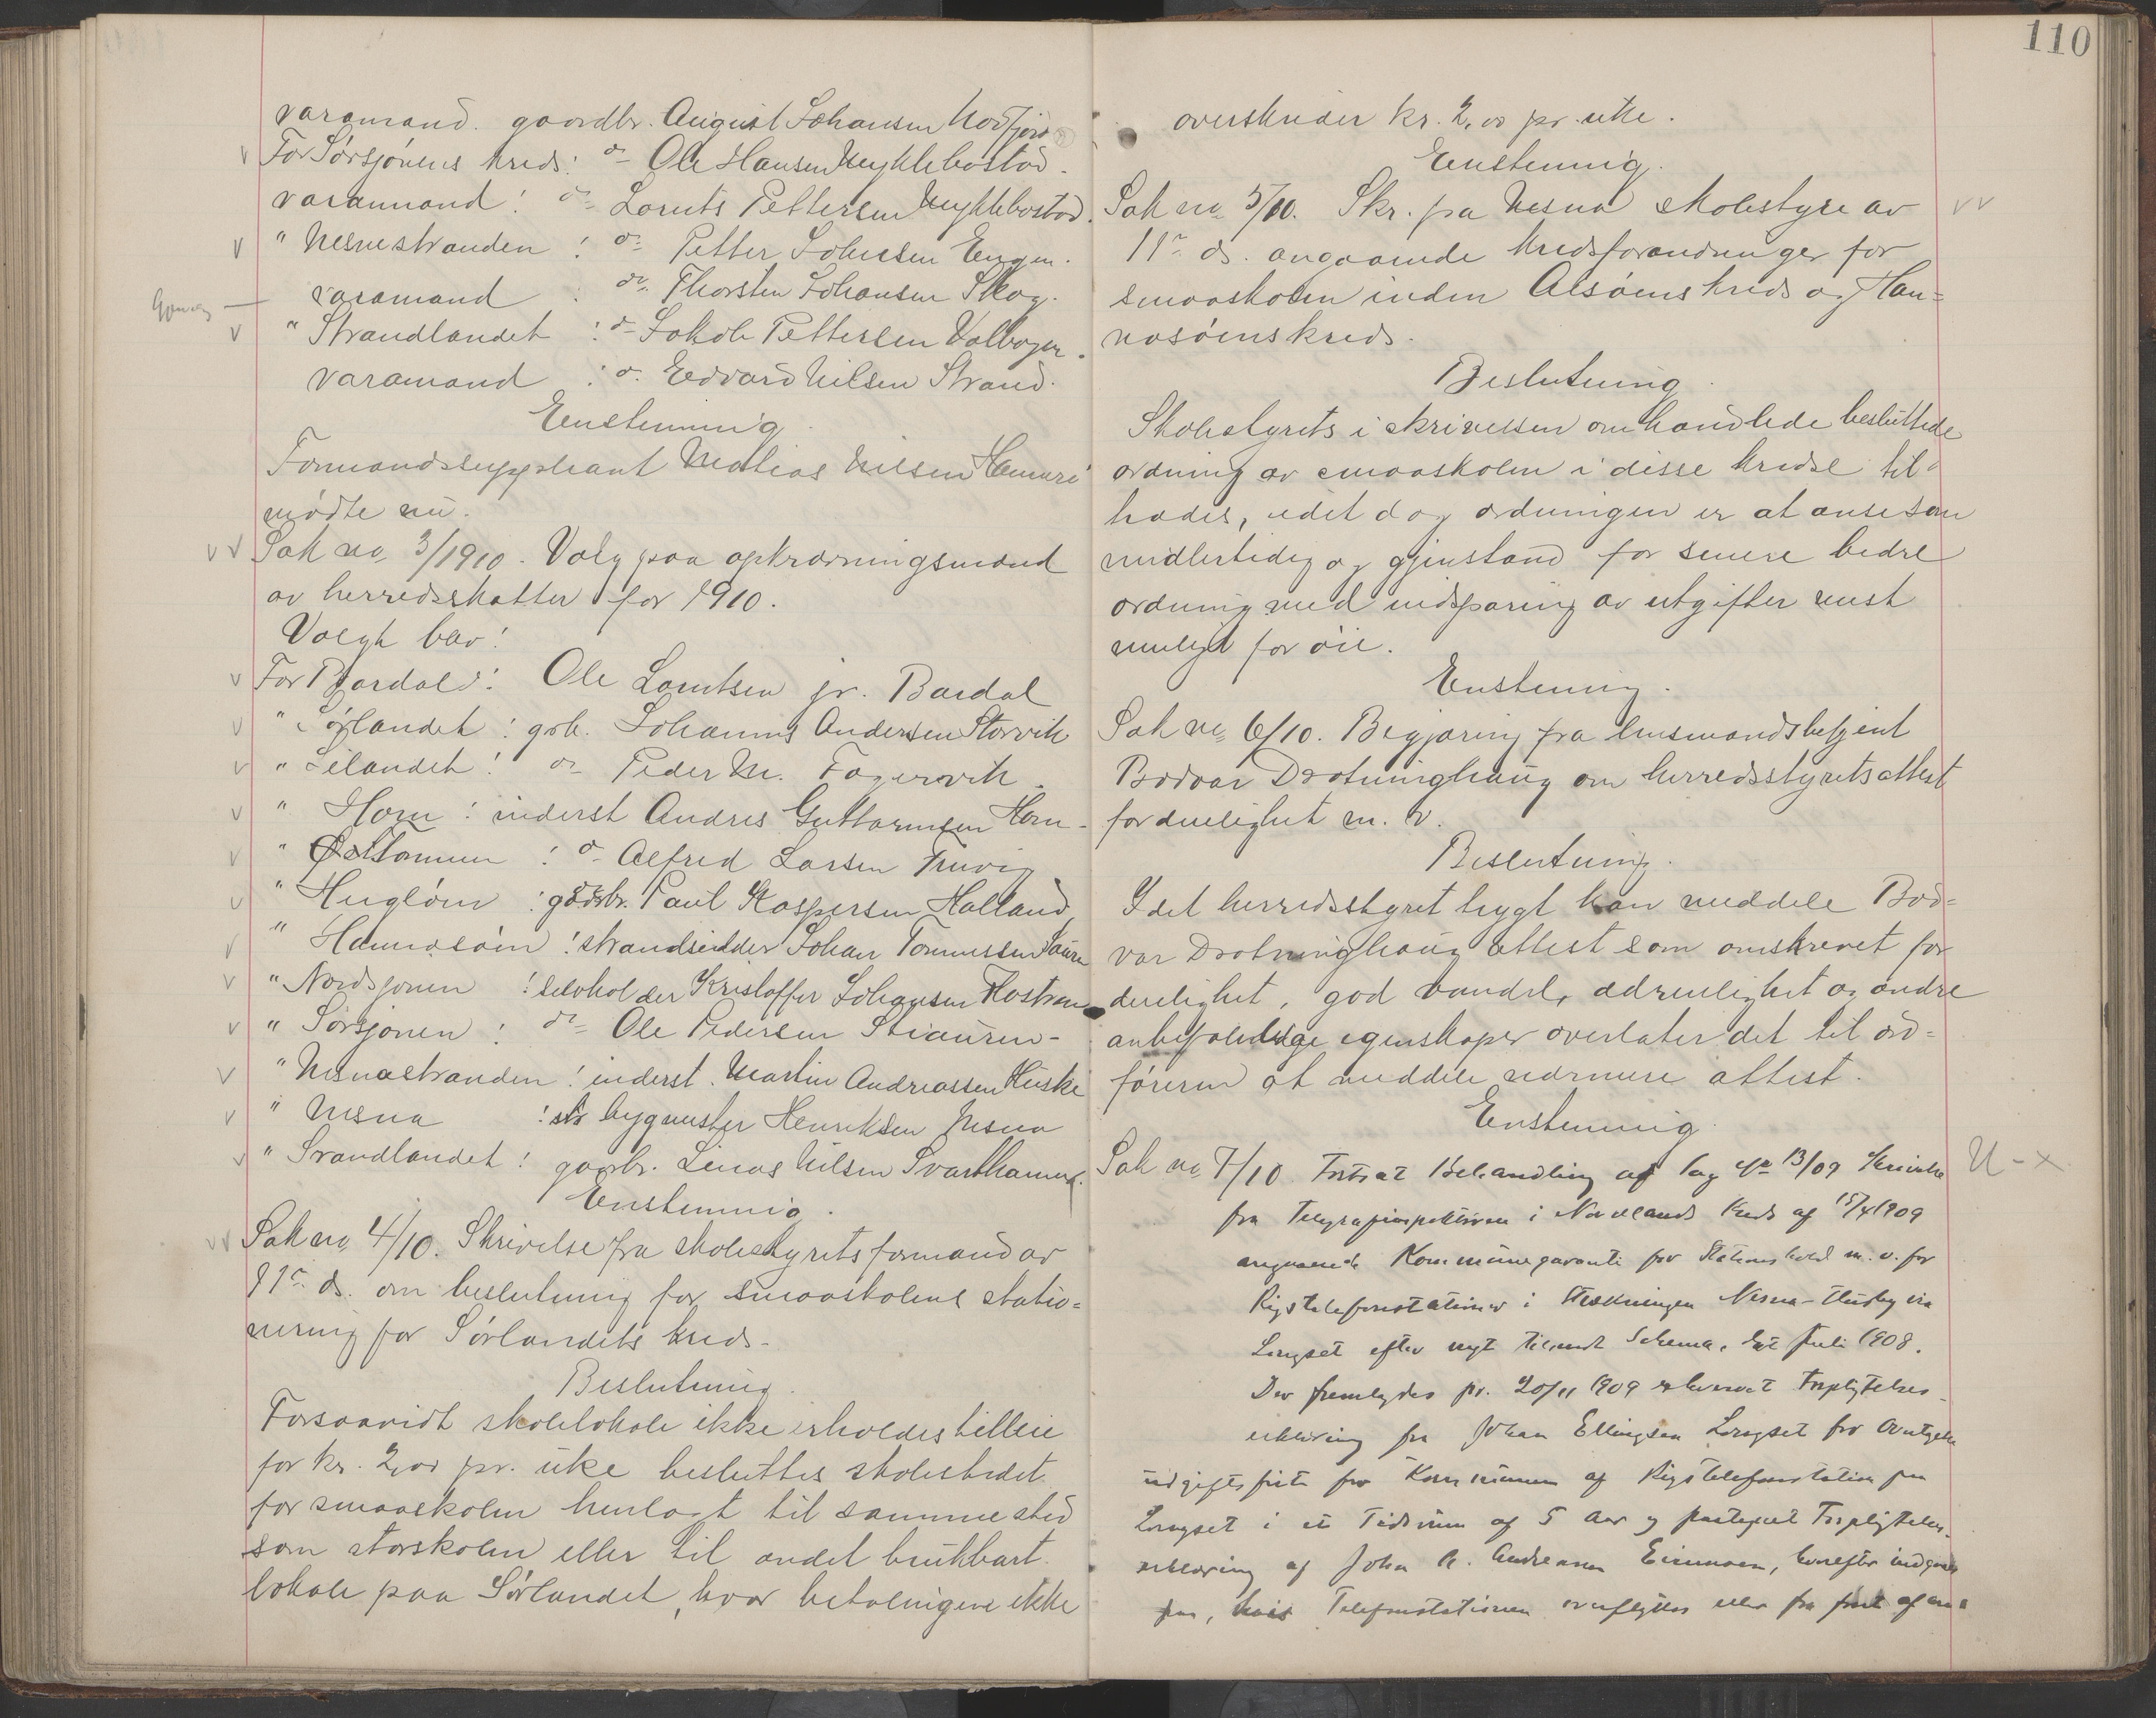 110
varamand. gaardbr. August Johansen Nordfjord
For Sørsjøens kreds: do Ole Hansen Myklebostad.
varamand: do Lornts Pettersen Myklebostad.
" Nesnestranden: do Petter Johnsen Engen.
varamand: do Thorsten Johansen Skog.
" Strandlandet: do Jakob Pettersen Valbogen.
varamand: do Edvard Nilsen Strand.
Enstemmig.
Formandssuppleant Matias Nilsen Hammerø
mødte nu.
Sak no 3/1910. Valg paa opkrævningsmænd
av herredsskatter for 1910.
Valgt blev:
For Bardal: Ole Lorntsen jr. Bardal
" Sørlandet: grb. Johannes Andersen Storvik
" Leilandet: do Peder M. Fagervik.
" Horn: inderst Andres Guttormsen Horn.
" : do Alfred Larsen
" Hugløen: gaardbr. Paul Kaspersen Halland
" Hannasøen: strandsidder Johan Tommessen Saura
" Nordsjonen: selvholder Kristoffer Johansen
" Sørsjonen: do Ole Pedersen
" Nesnastranden: inderst Martin Andreassen Huske
" Nesna: bygmester Henriksen Nesna
" Strandlandet: gaardbr. Linas Nilsen Svarthammer.
Enstemmig.
Sak no 4/10. Skrivelse fra skolestyrets formand av
11te ds. om beslutning for smaaskolens statio=
nering for Sørlandets kreds.
Beslutning.
Forsaavidt skolelokale ikke erholdes tilleie
for kr. 2,00 pr. uke besluttes skolestedet
for smaaskolen henlagt til samme sted
som storskolen eller til andet brukbart
lokale paa Sørlandet, hvor betalingen ikke
overskrider kr. 2,00 pr. uke.
Enstemmig.
Sak no 5/10. Skr. fra Nesna skolestyre av
11te ds. angaaende kredsforandringer for
smaaskolen inden Alsøens kreds og Han=
nasøens kreds.
Beslutning.
Skolestyrets i skrivelsen omhandlede besluttede
ordning av smaaskolen i disse kredse til=
trædes, idet dog ordningen er at anse som
midlertidig og gjenstand for senere bedre
ordning med indsparing av utgifter mest
muligt for øie.
Enstemmig.
Sak no 6/10. Begjæring fra lensmandsbetjent
Bodvar Drotninghaug om herredsstyrets attest
for duelighet m. v.
Beslutning.
Idet herredsstyret trygt kan meddele Bod=
var Drotninghaug attest som omskrevet for
duelighet, god vandel, ædruelighet og andre
anbefalelige egenskaper overlater det til ord=
føreren at meddele nærmere attest.
Enstemmig.
Sak no 7/10 Fortsat Behandling af Sag No 13/09 Skrivelse
fra Telegrafinspektøren i Nordlands Kreds af 15/4 1909
angaaende Kommunegaranti for Stationshold m. v. for
Rigstelefonstationer i Strækningen Nesna - Husby via
Langset efter nyt tilsendt Schema, dat Juli 1908.
Der fremlagdes pr. 20/11 1909 erhvervet Forpligtelses-
erklæring fra Johan Ellingsen Langset for
udgiftsfrit for Kommunen af Rigstelefonstation paa
Langset i et Tidsrum af 5 Aar og paategnet Forpligtelses-
erklæring af Johan A. Andreassen , hvorefter indgaaes
paa, hvis Telefonstationen overflyttes eller fra af